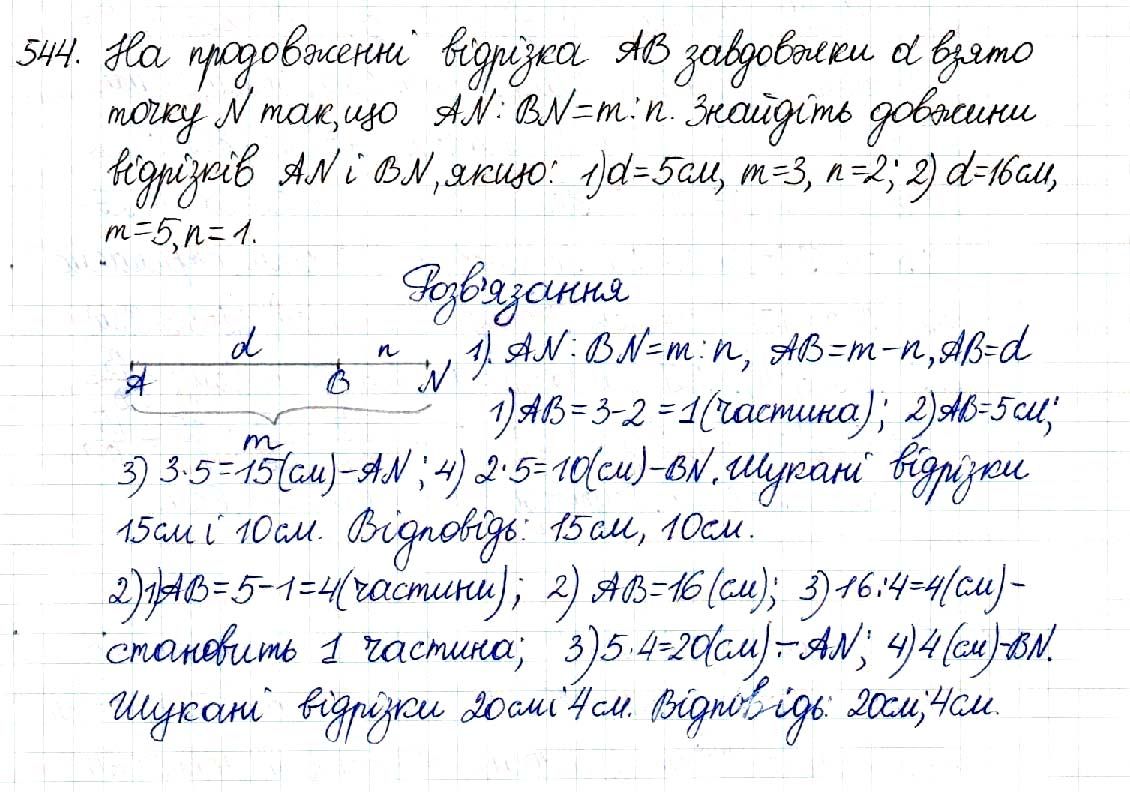 544. На продовженні відрізка AB завдовжки d взято
точку N так, що AN : BN = m : n. Знайдіть довжини
відрізків AN і BN, якщо: 1) d=5см, m=3, n=2; 2) d=16см,
m=5, n=1.
Розв'язання
d n
A B N
m
1). AN : BN = m : n, AB = m - n, AB = d
1) AB = 3-2 = 1 (частина); 2) AB=5см;
3) 3·5=15(см)-AN; 4) 2·5=10(см)-BN. Шукані відрізки
15см і 10см. Відповідь: 15см, 10см.
2) 1) AB=5-1=4(частини); 2) AB=16(см); 3) 16:4=4(см)-
становить 1 частина; 3) 5·4=20(см)-AN; 4) 4(см)-BN.
Шукані відрізки 20см і 4см. Відповідь: 20см; 4см.